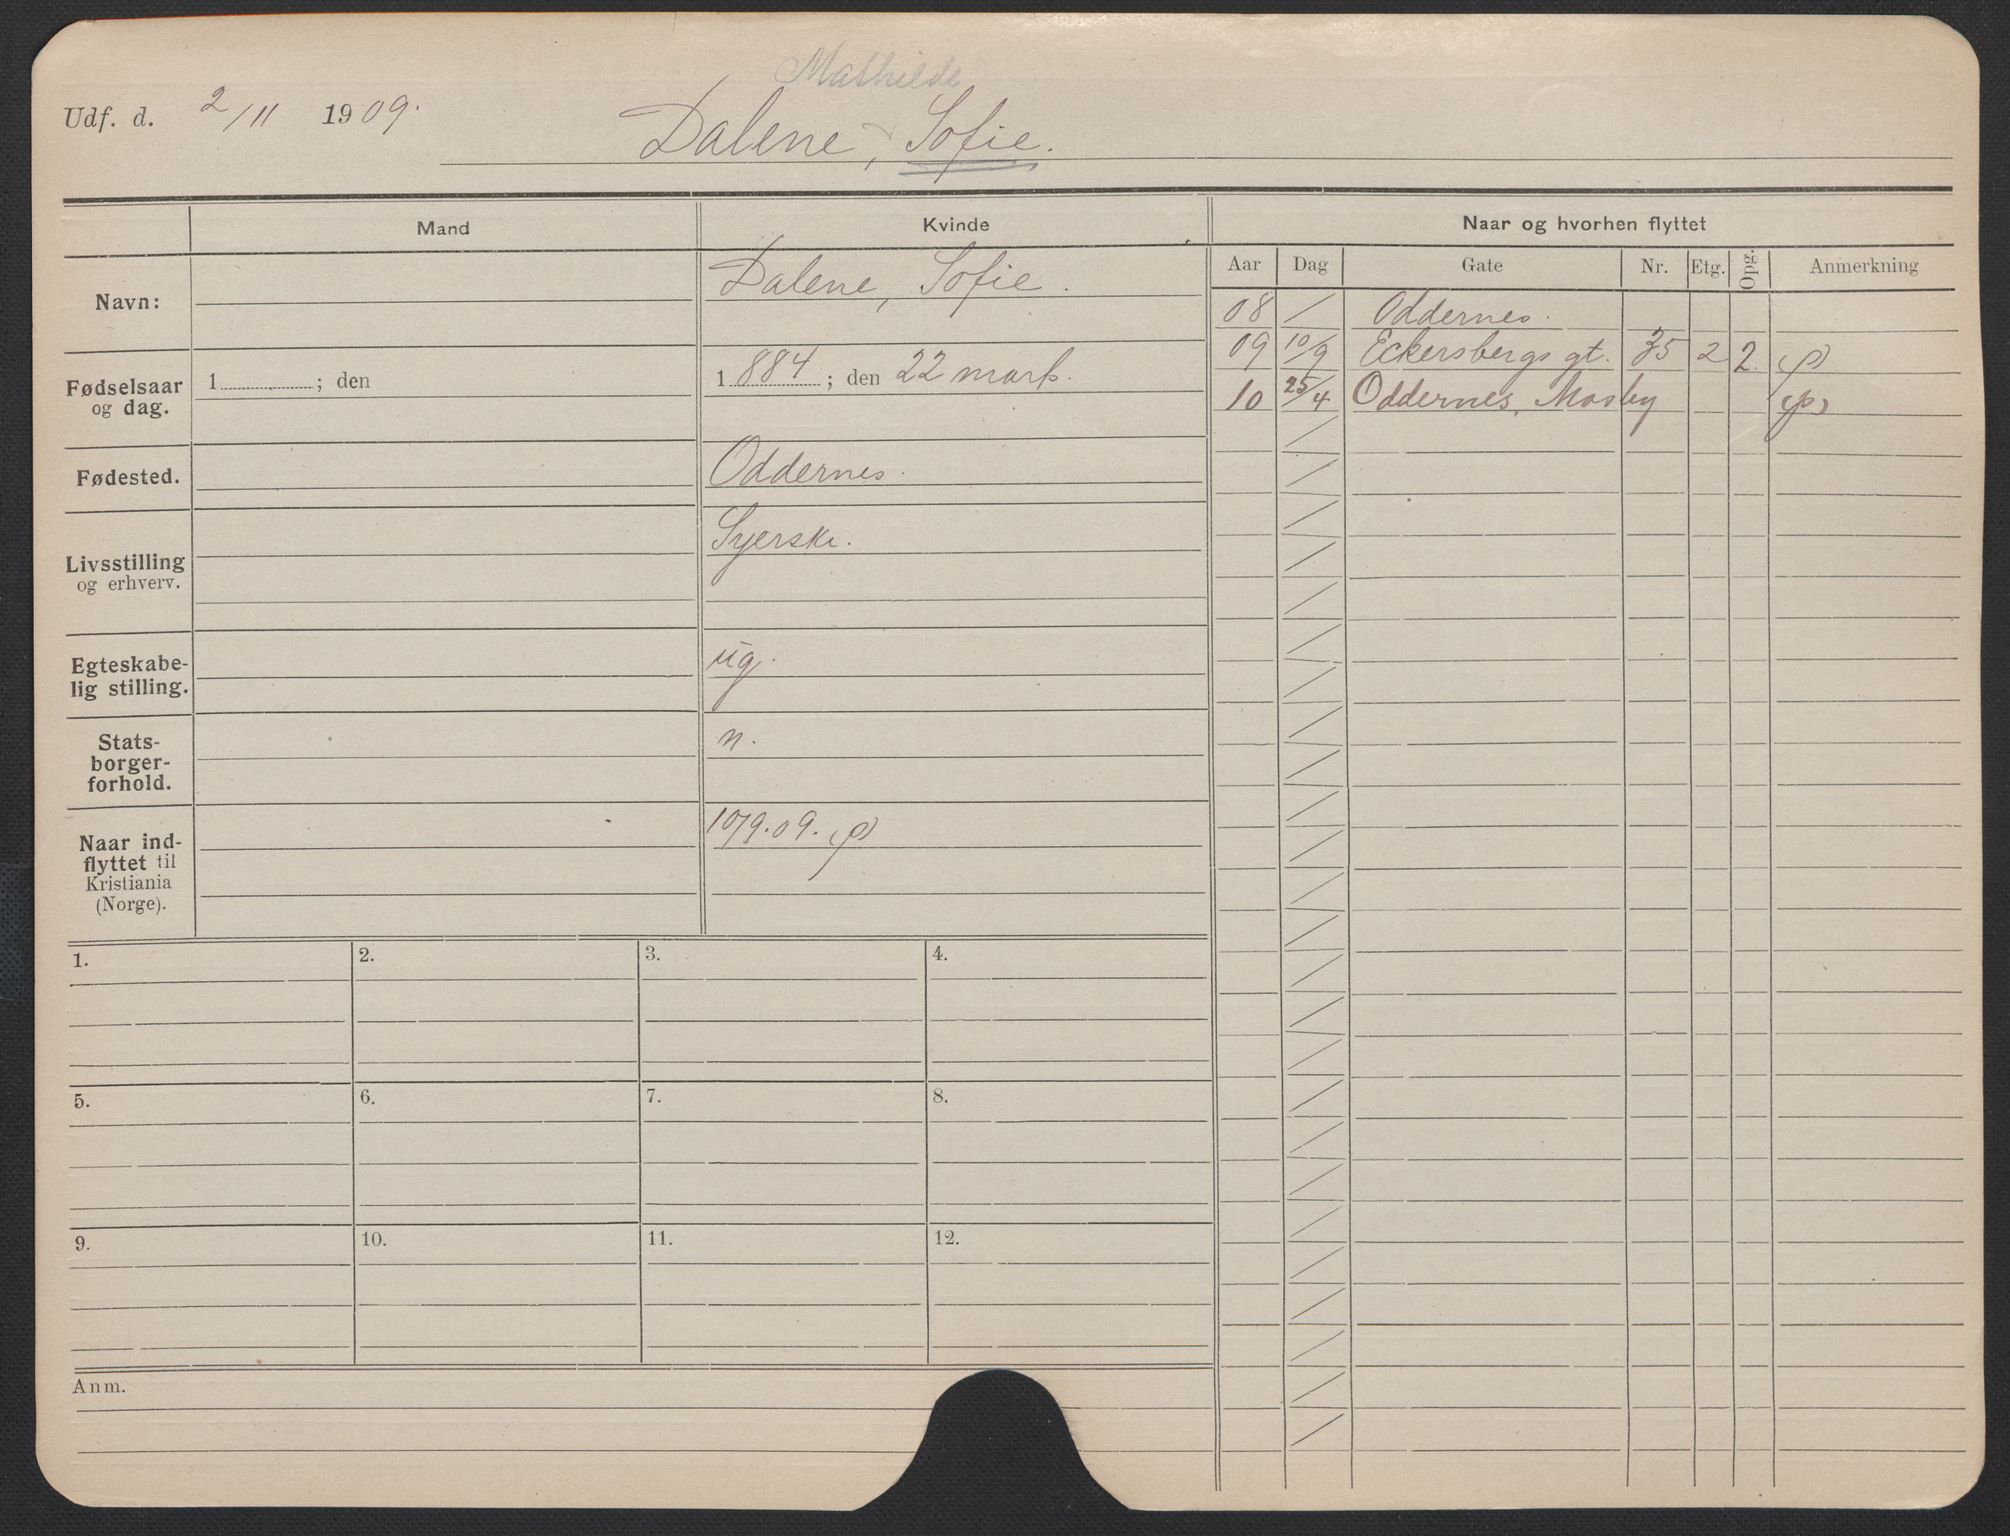 Mathilde
Udf. d. 2/11 1909.
Dalene, Sofie.
Mand
Kvinde
Naar og hvorhen flyttet
Aar Dag Gate Nr. Etg. Opg. Anmerkning
Navn:
Dalene, Sofie.
Fødselsaar og dag.
1 ; den
1 884 ; den 22 mars.
Fødested.
Oddernes.
Livsstilling og erhverv.
Syerske.
Egteskabe-
lig stilling.
ug.
Stats-
borger-
forhold.
n.
Naar ind-
flyttet til
Kristiania
(Norge).
10/9.09. (p)
08 / Oddernes.
09 10/9 Eckersbergs gt. 35 2 2. (p)
10 25/4 Oddernes, Mosby (p)
1. 2. 3. 4.
5. 6. 7. 8.
9. 10. 11. 12.
Anm.